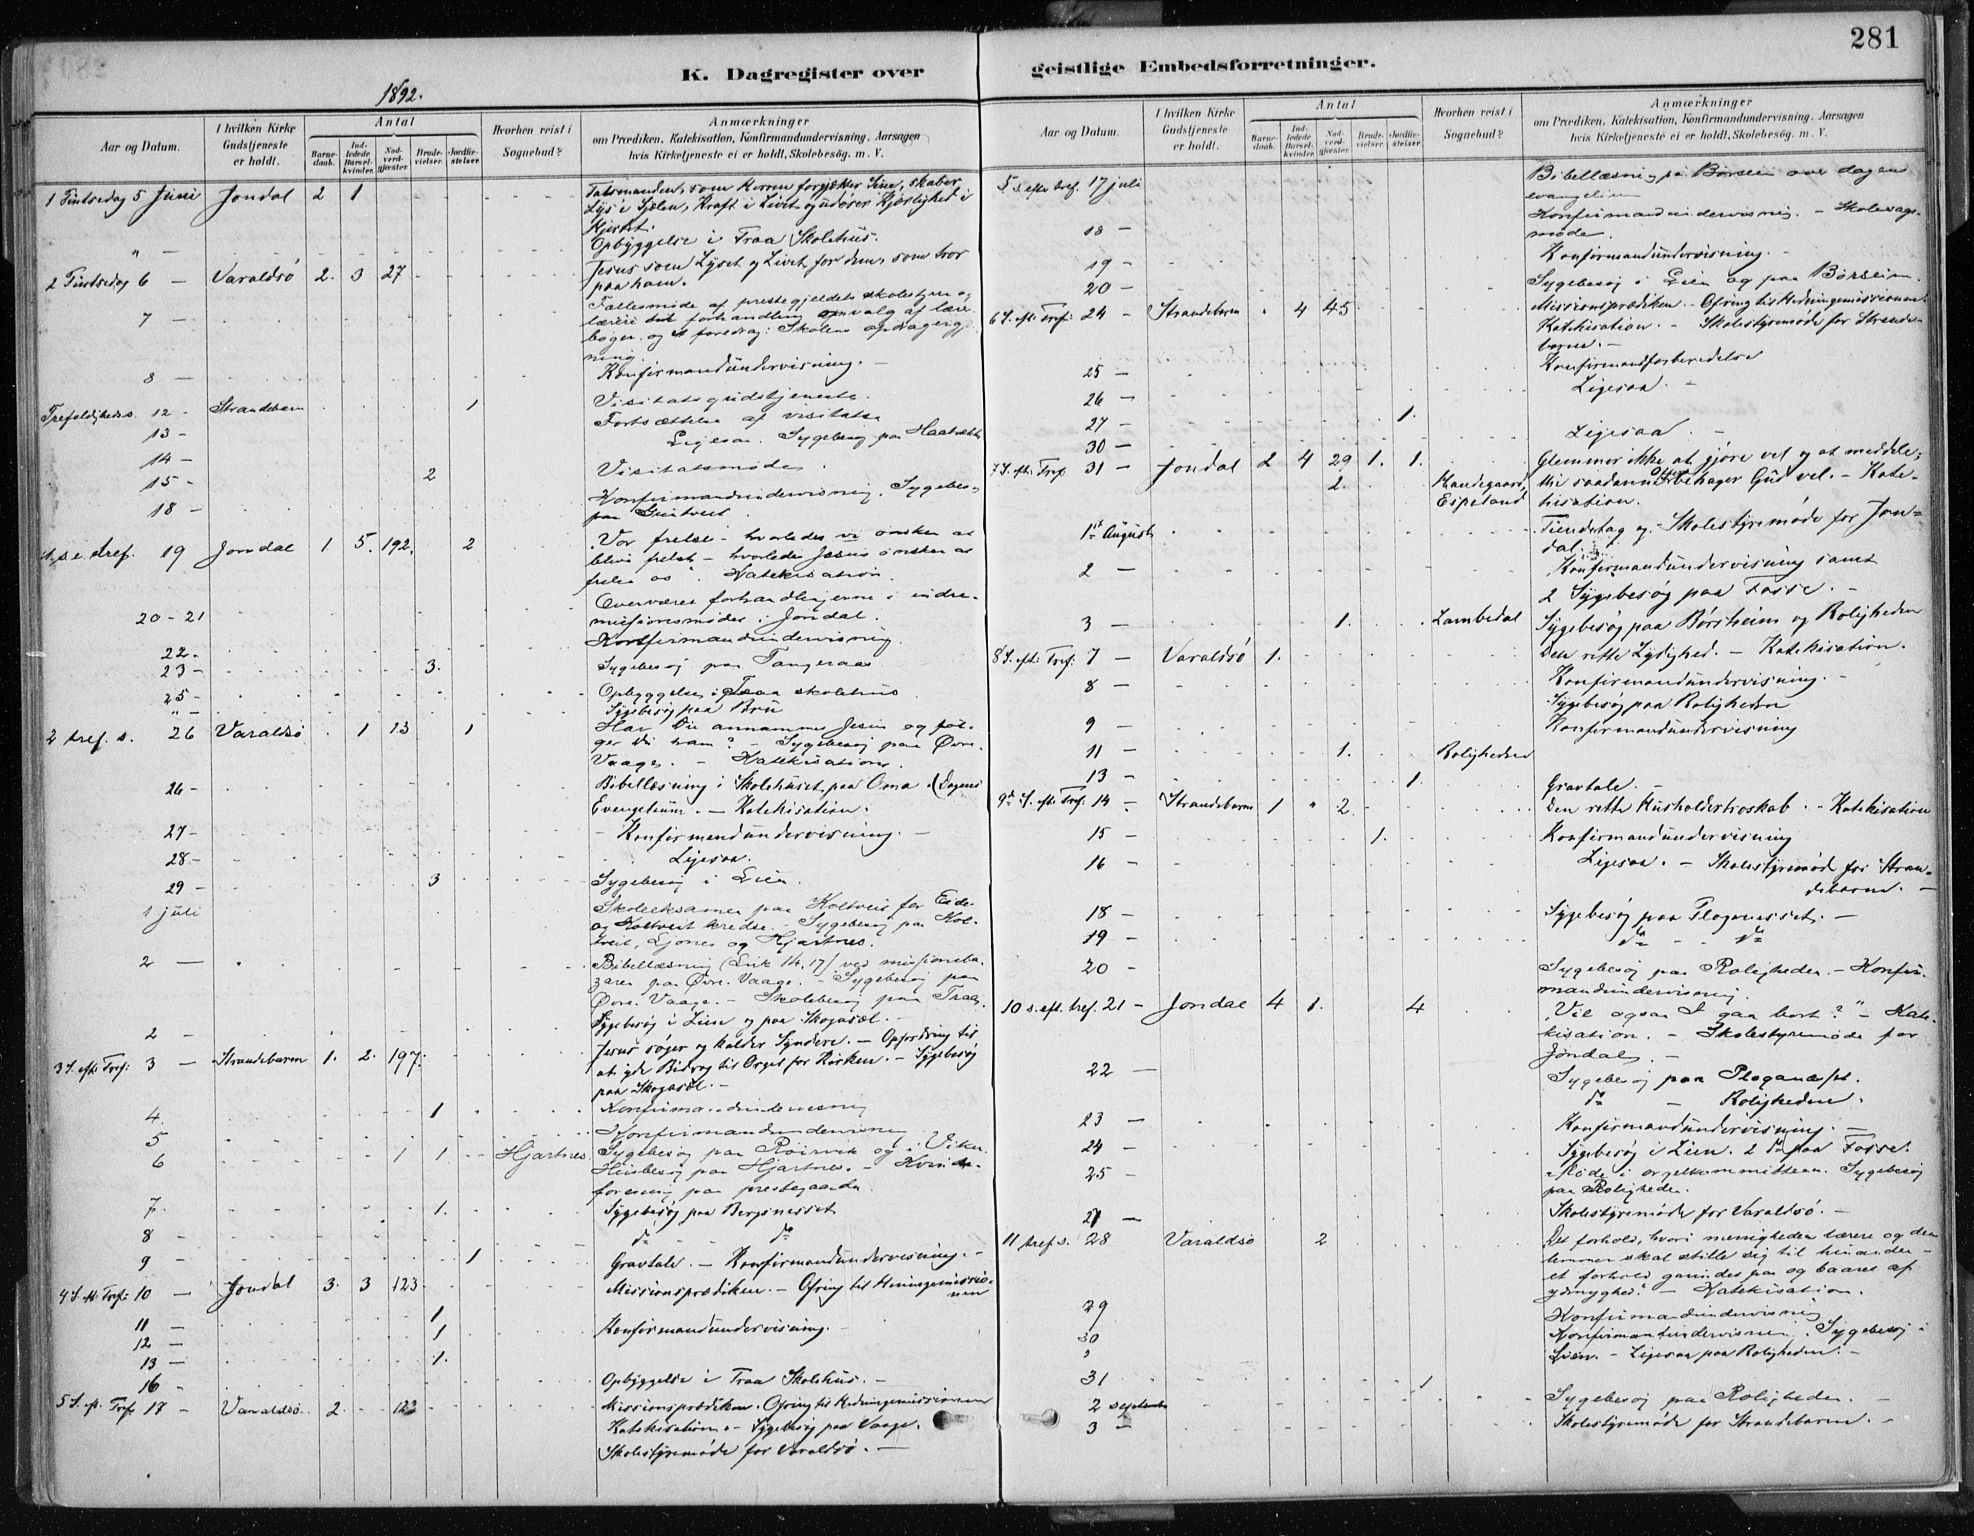 281
K. Dagregister over geistlige Embedsforretninger.
1892.
Aar og Datum. I hvilken Kirke Gudstjeneste er holdt. Antal Barnedaab. Indledede Barselkvinder. Nadverdgjæster Brudevielser. Jordfæstelser Hvorhen reist i Sognebud? Anmærkninger om Prædiken, Katekisation, Konfirmandundervisning, Aarsagen hvis Kirketjeneste ei er holdt, Skolebesøg. m. V.
1 Pintsedag 5 Juni Jondal 2 1 Talsmanden, som Herren forgjætter Sine, skaber
Lys i Sjælen, Kraft i Livet og udøser Kjærlighed i
Hjertet.
" — Opbyggelse i Traa Skolehus.
2 Pintsedag 6 — Varaldsø 2. 3 27 Jesus som Lyset og Livet for dem, som tror
paa ham.
7 — Fællesmøde af prestegjeldets skolestyre og
lærere til forhandling om valg af lære-
bøger og et foredrag: Skolens opdragergj
ning.
8 — Konfirmandundervisning. —
Trefoldigheds. 12 — Strandebarm 1 Visitatsgudstjeneste.
13 — Fortsættelse af visitatse
14 — Ligesaa. Sygebesøg paa
15 — 2 Visitatsmøde.
18 — Konfirmandundervisning. Sygebesøg
paa
1. s. e. tref. 19 Jondal 1 5. 192. 2 "Vor frelse — hvorledes vi ønsker at
blive frelst — hvorledes Jesus ønsker at
frelse os". Katekisation.
20 - 21 Overværet forhandlingerne i indre-
missionsmøde i Jondal.
22 — Konfirmandundervisning.
23 — 3. Sygebesøg paa Tangeraas
25 — Opbyggelse i Traa skolehus
" — Sygebesøg paa Bru
2 tref. s. 26 Varaldsø 1 13 1 Har Du annammet Jesus og føl-
ger Du ham? — Sygebesøg paa Øvre
Vaage. — Katekisation.
26 — Bibellæsning i Skolehuset paa Oma (Dagens
Evangelium. — Katekisation.
27 — Konfirmandundervisning. —
28 — Ligesaa.
29 — 3 Sygebesøg i Lien.
1 juli Skoleeksamen paa Koltveit for Eide
og Koltveit kredse. Sygebesøg paa Kol-
tveit, Ljones og Hjartnes.
2 — Bibellæsning (Luk 14, 17) ved missionsba-
zaren paa Øvre Vaage. — Sygebesøg paa
Øvre Vaage. — Skolebesøg paa Traa.
2 — Sygebesøg i Lien og paa Skogasæl. —
3 S. eft. Tref: 3 — Strandebarm 1. 2. 197. Jesus søger og kalder Syndere. — Opfordring til
at yde Bidrag til Orgel for Kirken. — Sygebesøg
paa Skogasæl. —
4. 1 Konfirmandundervisning
5 Konfirmandundervisning
6 1 1 Hjartnes. Sygebesøg paa Røirvik og i Viken
Husbesøg paa Hjartnes. — Kvinde-
forening paa prestegaarden.
7. 1. Sygebesøg paa Bergsnesset
8 — do do
9 — 1 Gravtale. — Konfirmandundervisning. —
4 S. eft. Tref: 10 — Jondal 3. 3 123 Missionsprædiken. — Ofring til Hedningemissio-
nen
11 — 1 Konfirmandundervisning. —
12 — 1
13 — 1.
16 — Opbyggelse i Traa Skolehus. —
5 S. eft. Tref 17 — Varaldsø. 2. 122 Missionsprædiken. Ofring til Hedningemissionen
Katekisation. — Sygebesøg paa Vaage.
Skolestyremøde for Varaldsø. —
Aar og Datum. I hvilken Kirke Gudstjeneste er holdt. Antal Barnedaab. Indledede Barselkvinder. Nadverdgjæster Brudevielser. Jordfæstelser Hvorhen reist i Sognebud? Anmærkninger om Prædiken, Katekisation, Konfirmandundervisning. Aarsagen hvis Kirketjeneste ei er holdt, Skolebesøg. m. V.
5 s. efter tref. 17 juli Bibellæsning paa Børseim over dagens
evangelium
18 — Konfirmandundervisning. — Skolesags-
møde.
19 — Konfirmandundervisning. —
20 — Sygebesøg i Lien og paa Børseim
6 S. eft. Tref: 24 — Strandebarm 4 45. Missionsprædiken. Ofring til Hedningemissionen.
Katekisation. — Skolestyremøde for Strande-
barm. —
25 — Konfirmandforberedelse
26 — Ligesaa. —
27 — 1.
30 — Ligesaa —
7 S. eft. Tref 31 — Jondal 2 4 29 1. 1. Glemmer ikke at gjøre vel og at meddele;
2. Espeland thi saadanne Offere behager Gud vel. — Kate-
kisation.
1st August Tiendetag og Skolestyremøde for Jon-
dal.
2 — Konfirmandundervisning samt
2 Sygebesøg paa Fosse. —
3 — 1. Lambedal Sygebesøg paa Børsheim og Roligheden
8 S. eft: Tref: 7 — Varaldsø 1. Den rette Lydighed. — Katekisation.
8 — Konfirmandundervisning. —
Sygebesøg paa Roligheden
9 — Konfirmandundervisning
11 — 1. Roligheden
13 — 1. Gravtale. —
9de S. eft. Tref: 14 — Strandebarm 1 " 2 Den rette Husholdertroskab. — Katekisation
15 — 1. Konfirmandundervisning
16 — Ligesaa. — Skolestyremøde for Stran-
debarm. —
18 — Sygebesøg paa Ploganesset. —
19 — do — do
20 — Sygebesøg paa Roligheden. — Konfir-
mandundervisning.
10 s. eft. tref. 21 — Jondal 4 1. 4 "Vil ogsaa I gaa bort?" — Kate-
kisation. — Skolestyremøde for
Jondal. —
22 — Sygebesøg paa Ploganæsset.
do — Roligheden.
23 — Konfirmandundervisning. —
24 — Sygebesøg i Lien. 2 do paa Fosse.
25 — Møde i orgelkommitteen. Sygebesøg
paa Roligheden.
27 — Skolestyremøde for Varaldsø. —
11 tref s. 28 Varaldsø 2 Det forhold, hvori menighedens lærere og dens
lemmer skal stille sig til hinanden —
et forhold grundet paa og baaret af
ydmyghed." — Katekisation.
29 Konfirmandundervisning
30 Konfirmandundervisning. Sygebesøg i
" Lien. — Ligesaa paa Roligheden. —
31 1
2 September Sygebesøg paa Roligheden. —
3 — Skolestyremøde for Strandebarm. —